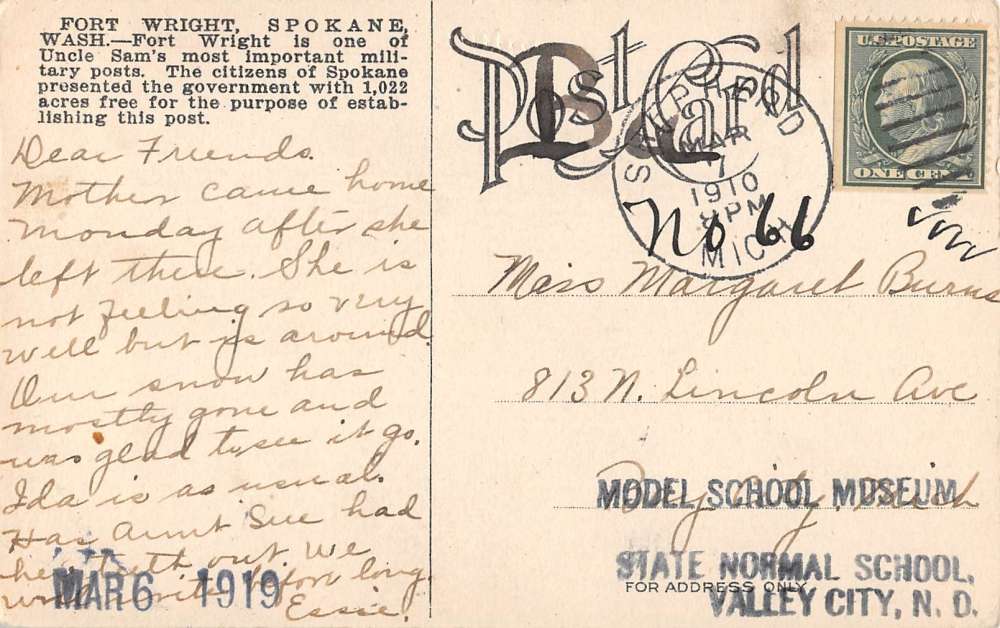 FORT WRIGHT, SPOKANE,
WASH.—Fort Wright is one of
Uncle Sam's most important mili-
tary posts. The citizens of Spokane
presented the government with 1,022
acres free for the purpose of estab-
lishing this post.
Dear Friends.
Mother came home
Monday after she
left there. She is
not feeling so very
well but is around
Our snow has
mostly gone and
was glad to see it go.
Ida is as usual.
Has Aunt Sue had
her teeth out. We
will write before long.
Essie.
MAR 6 1919
Post Card
SHEPHERD
MAR
1910
PM
MICH.
No 66
U.S. POSTAGE
ONE CENT
Miss Margaret Burns
813 N. Lincoln Ave
Bay City, Mich
MODEL SCHOOL MUSEUM
STATE NORMAL SCHOOL,
FOR ADDRESS ONLY
VALLEY CITY, N. D.